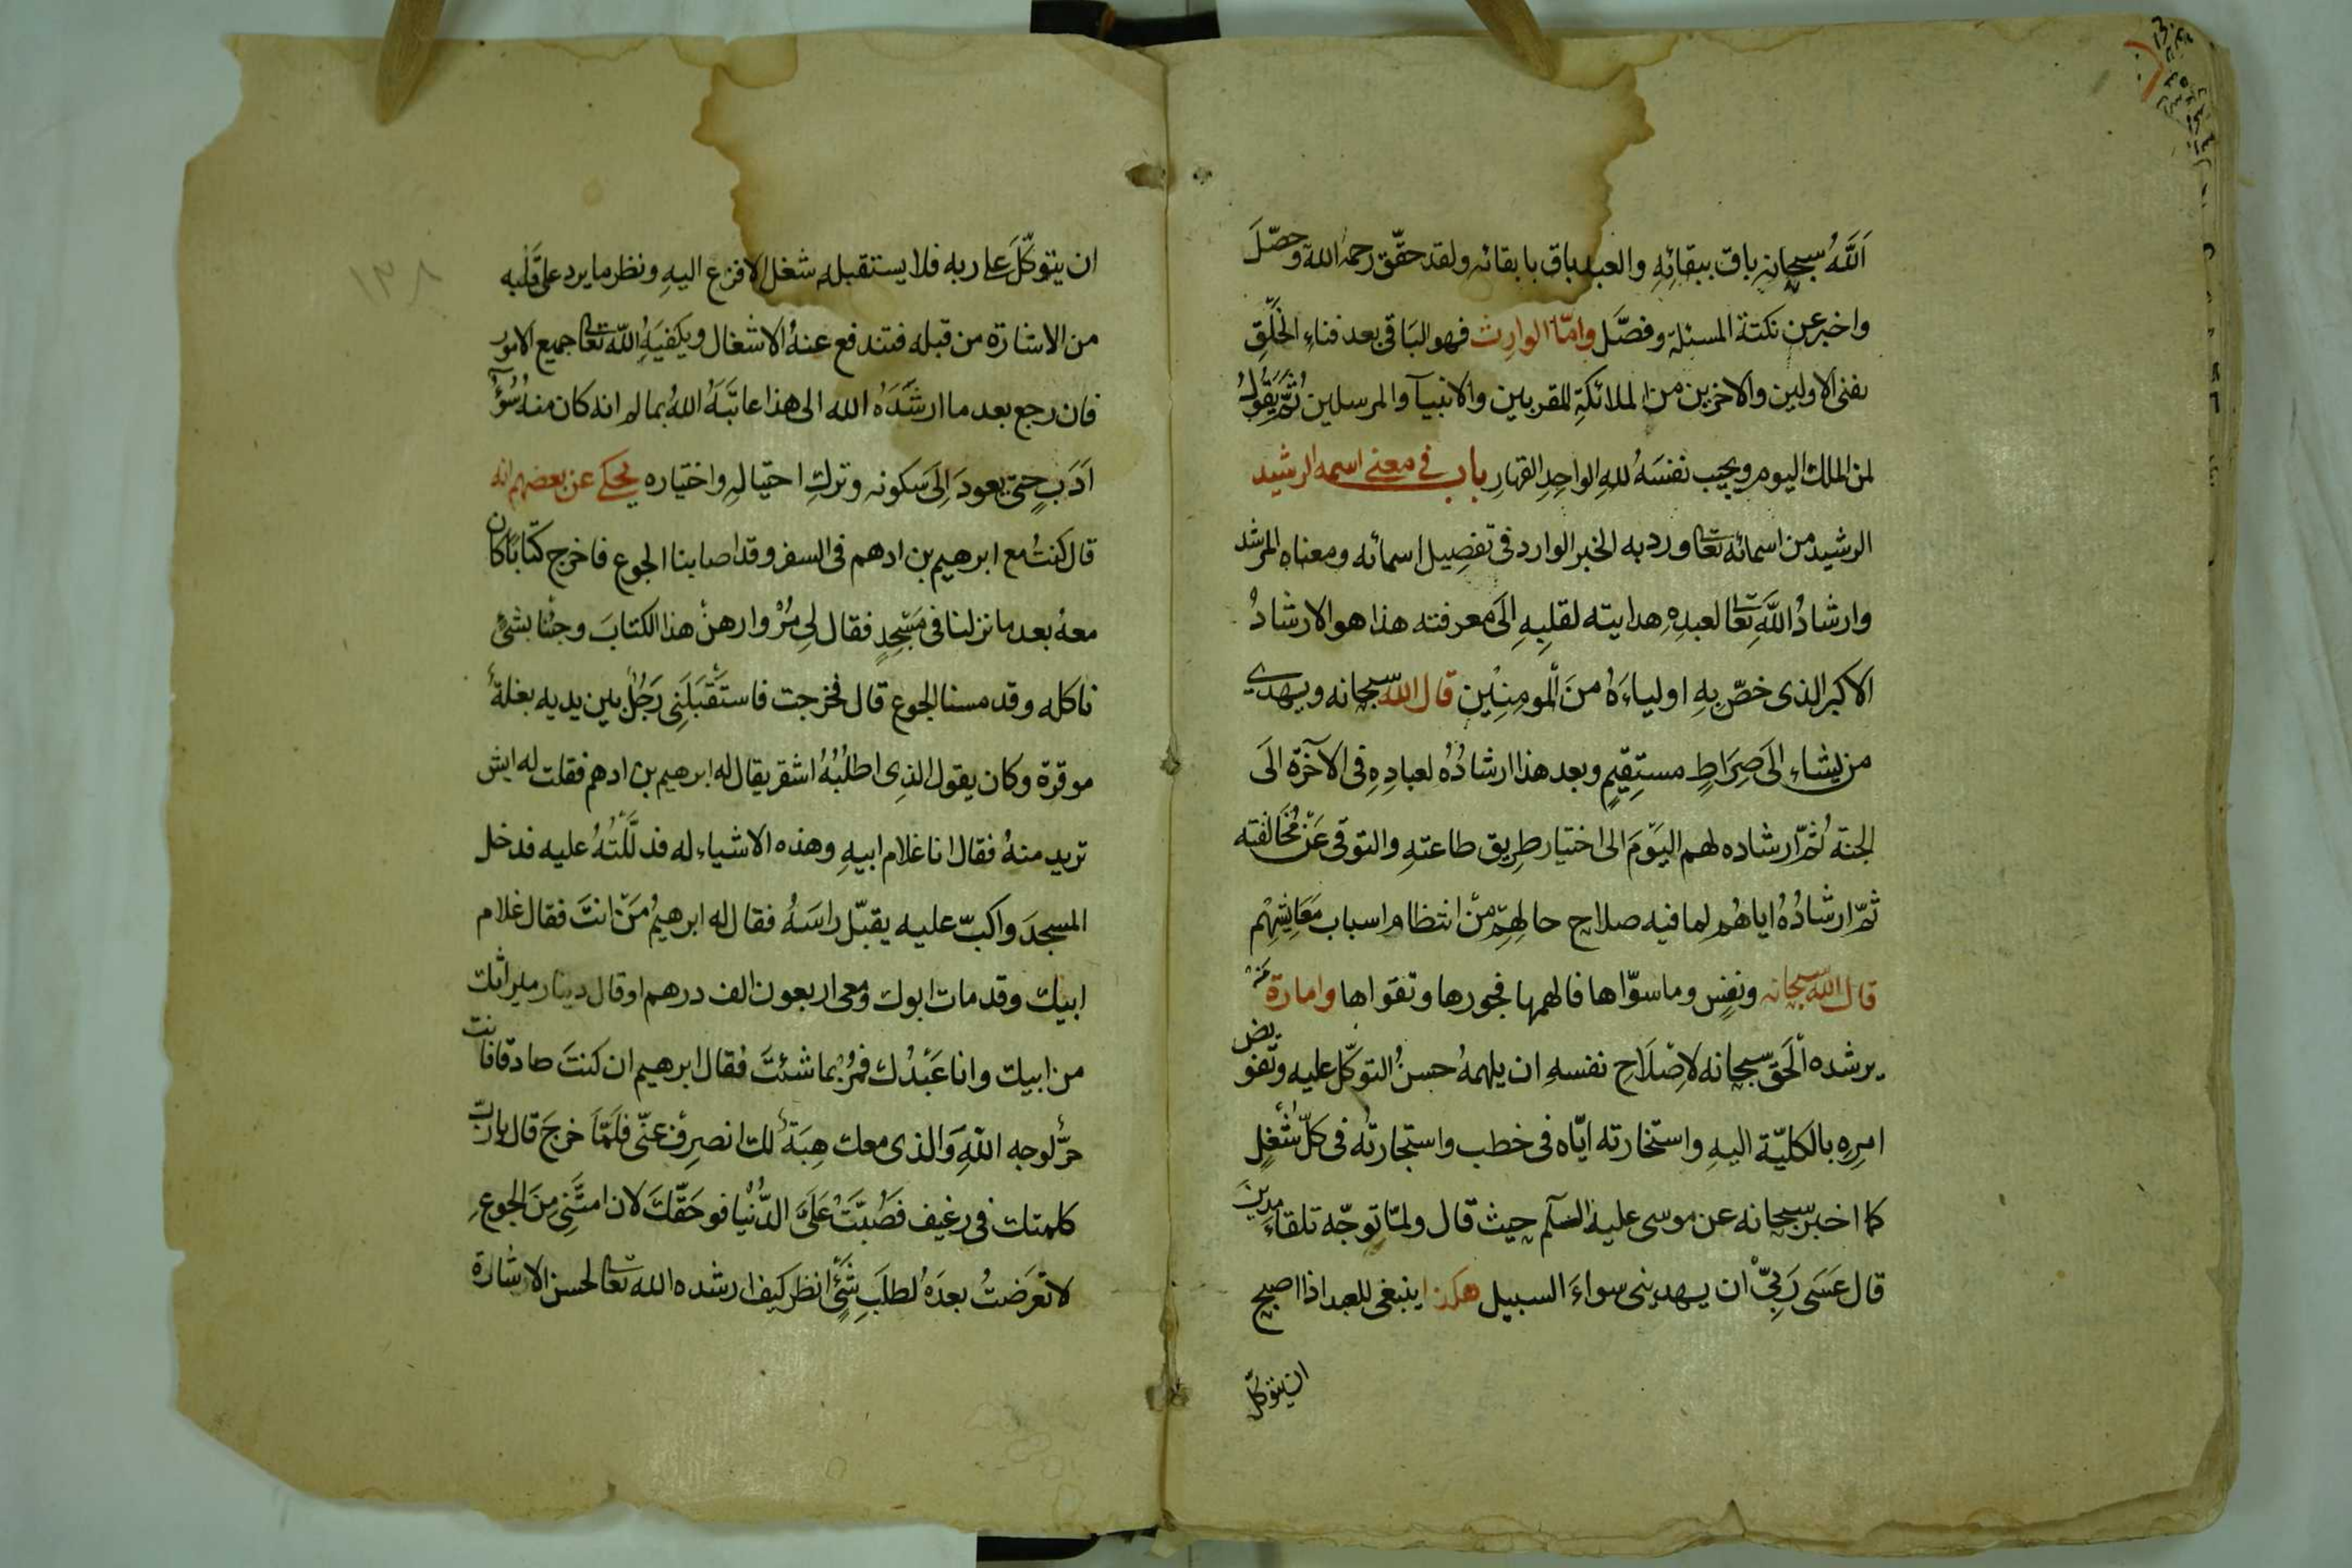 اَللَّهُ سبحانه باق ببقائِهِ والعبد باق بابقائه ولقد حقّق رحمه الله وحصّلَ
واخبر عن نكتة المسئلة وفصَّل وامّا الوارِث فهو البَاقى بعد فناءِ الخَلْقِ
يفنى الاولين والاخرين من الملائكةِ المقربين والانبيآ والمرسلين ثُمَّ يَقُولُ
لمن الملك اليوم ويجيب نفسَهُ للهِ الواحِدِ القهارِ باب فى معنى اسمه الرشيد
الرشيد من اسمائه تعا ورد به الخبر الوارد فى تفصِيل اسمائه ومعناه المرشد
وارشادُ اللَّهِ تعَا لعبدِهِ هدايته لقلبِهِ اِلَى معرفته هذا هو الارشادُ
الاكبر الذى خصّ بِهِ اولياءَهُ مِنَ الْمومِنِيْن قال الله سبحانه ويهدي
من يشاء اِلَى صِرَاطٍ مستِقيمٍ وبعد هذا ارشادُهُ لعبادِهِ فى الآخرة اِلَى
الجنة ثُمَّ ارشاده لهم اليَوْمَ الى اختيار طريق طاعتهِ والتوقى عَنْ مُخَالفته
ثمّ ارشادُهُ اياهُم لما فيه صلاح حالِهِمْ مِنْ انتظام اسباب مَعَايشِهِمْ
قال الله سبحانه ونفسٍ وماسوّاها فالهمها فجورها وتقواها وامارة مَنْ
يرشده اْلحَق سبحانه لاِصْلَاحِ نفسهِ ان يلهمهُ حسنُ التوكّل عليه وتفويض
امرِهِ بالكليّة اليهِ واستخارته ايّاه فى خطب واستجارتُه فى كلّ شُغْلٍ
كما اخبر سبحانه عن موسى عليه السلم حيث قال ولمّا توجّه تلقاءِ مدينَ
قال عَسَى رَبِىّ ان يهدينى سواءَ السبيل هكذا ينبغى للعبد اذا اصبح
ان يتوكّل
ان يتوكّلَ على ربه فلا يستقبله شغل الا فزع اليهِ ونظر ما يرد على قَلْبه
من الاشارة من قبله فتندفع عنهُ الاشغال ويكفيَهِ اللّه تعا جميع الامور
فان رجع بعد ما ارشَدَهُ الله الى هذا عاتبَهُ اللهُ بما لو انه كان منهُ سُوْءُ
اَدَبٍ حتى يعودَ اِلَى سكونه وتركِ احتيالهِ واختياره يحكى عن بعضهم انه
قال كنتُ مع ابرهيم بن ادهم فى السفر وقد اصابنا الجوع فاخرج كتابًا كان
معهُ بعد ما نزلنا فى مَسْجِدٍ فقال لِى مُرْ وارهنْ هذا الكتابَ وجئنا بشئٍ
ناكله وقد مسنا الجوع قال فخرجت فاستَقْبَلَنِى رَجُلٌ بين يديه بغلةٌ
موقرة وكان يقول الذِى اطلبُهُ اشقر يقال له ابرهيم بن ادهم فقلت له ايش
تريد منهُ فقال انا غلام ابيهِ وهذه الاشياء له فدلَّلْتُهُ عليه فدخل
المسجدَ واكبّ عليه يقبّل راسَهُ فقال له ابرهيمُ مَنْ انتَ فقال غلام
ابيك وقد مات ابوك ومعى اربعون الف درهم اوقال دينار ميراثك
من ابيك وانا عَبْدُك فمُرْ بما شئتَ فقال ابرهيم ان كنتَ صادقا فانت
حرٌّ لوجه اللّهِ وَالذى معك هِبَةٌ لك انصرِف عنّى فلَمَّا خرجَ قال يارب
كلمتك فى رغيف فصُبَّتْ عَلَىَّ الدُّنْيَا فو حَقّكَ لان امتَّنِى مِنَ الجوعِ
لا تعَرَضتُ بعدَهُ لطلَبِ شَئٍ انظر كيف ارشده الله تعا لحسن الاشارة
١٣٨